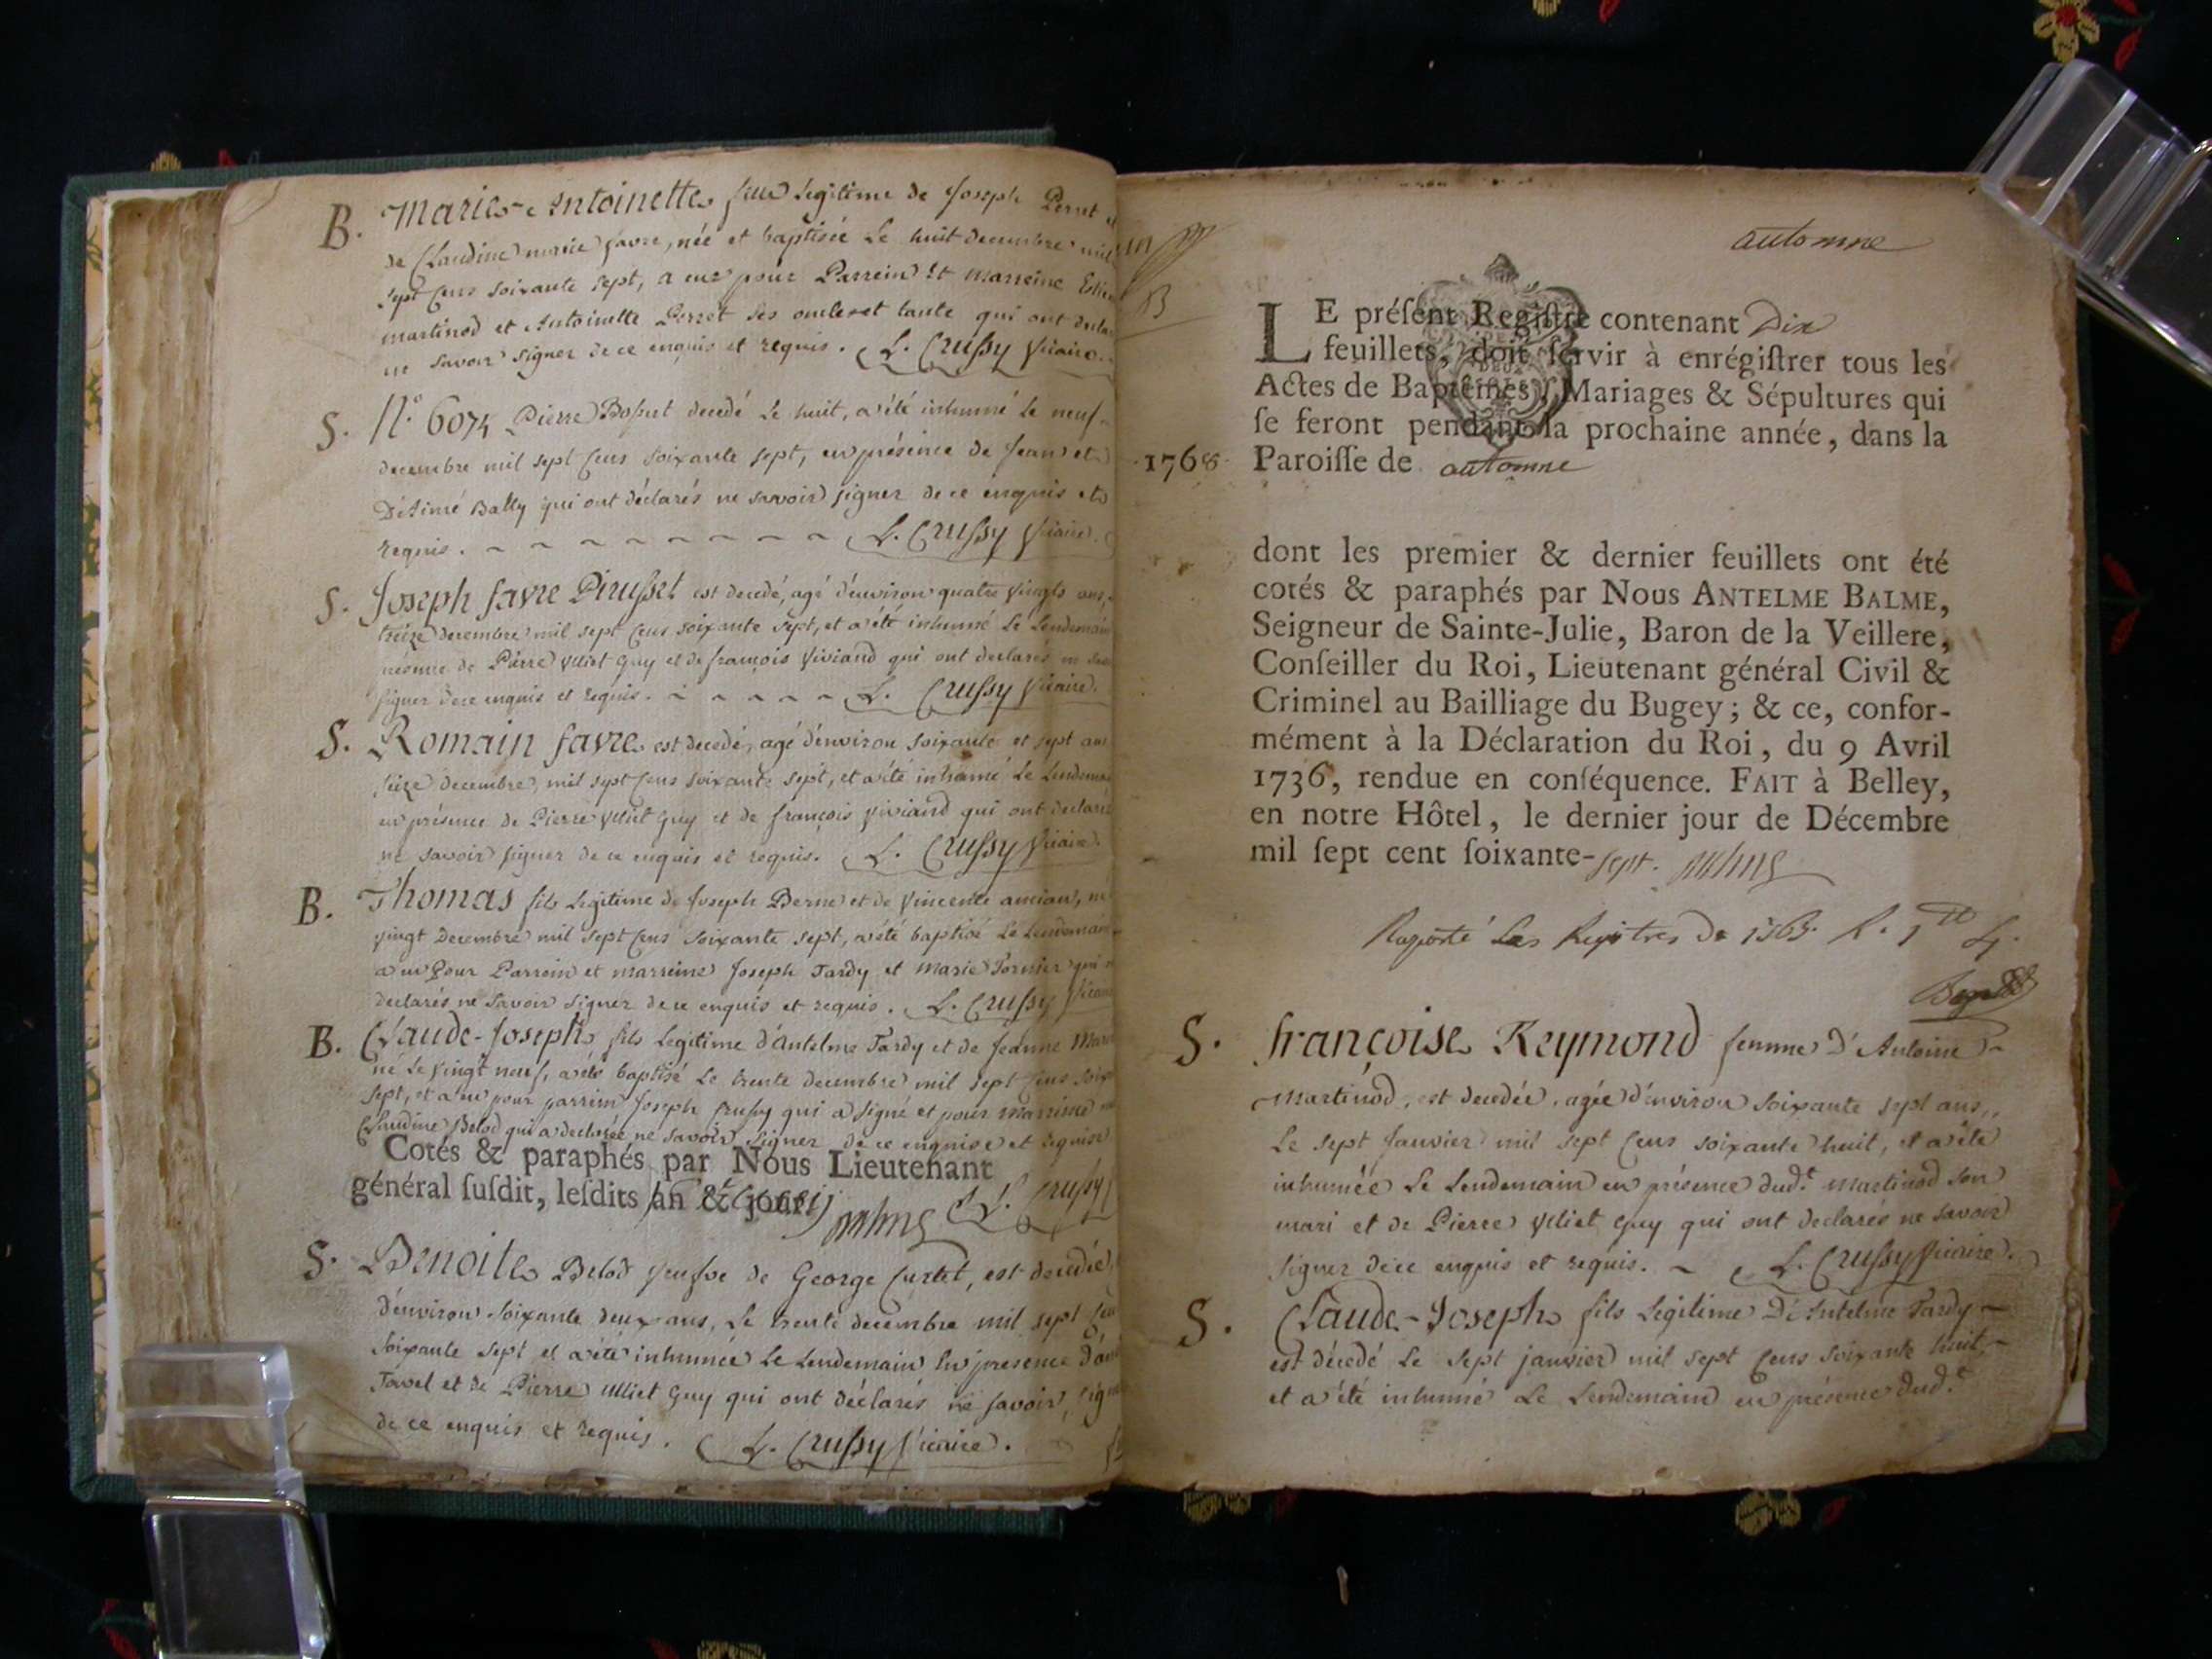 B. Marie-Antoinette fille Legitime de Joseph Perret et
de Claudine marie favre, née et baptisée Le huit decembre mil
sept Cens soixante sept, a eue pour Parrein Et Marreine
martinod et Antoinette Perret ses oncle et tante qui ont decla
ne savoir signer de ce enquis et requis. L. Crussy Vicaire.
S. N.° 6074 Pierre Bossut decedé Le huit, a été inhumé Le neuf
decembre mil sept Cens soixante sept, en présence de Jean et
Bally qui ont déclarés ne savoir signer de ce enquis et
requis. L. Crussy Vicaire.
S. Joseph favre Pirusset est decedé, agé d'environ quatre Vingts ans,
treize decembre mil sept Cens soixante sept, et a été inhumé Le Lendemain
de Pierre Ulliet Guy et de françois Viviand qui ont declarés ne
signer de ce enquis et requis. L. Crussy Vicaire.
S. Romain favre est decedé, agé d'environ soixante et sept ans
seize decembre, mil sept Cens soixante sept, et a été inhumé Le Lendemain
en présence de Pierre Ulliet Guy et de françois Viviand qui ont declarés
ne savoir signer de ce enquis et requis. L. Crussy Vicaire.
B. Thomas fils Legitime de Joseph Berne et de Vincente ancian, né
vingt Decembre mil sept Cens soixante sept, a été baptisé Le Lendemain
a eu Pour Parrein et marreine Joseph Tardy et Marie Fornier qui
declarés ne savoir signer de ce enquis et requis. L. Crussy Vicaire
B. Claude-Joseph fils Legitime d'Antelme Tardy et de Jeanne
né Le Vingt neuf, a été baptisé Le trente decembre mil sept Cens
sept, et a eu pour parrein Joseph Crussy qui a signé et pour marreine
Claudine Belod qui a declarée ne savoir signer de ce enquise et requise
Cotés & paraphés par Nous Lieutenant
général ſuſdit, leſdits an & jour.
L. Crussy
S. Benoite Belod veufve de George Curtet, est decedée,
d'environ soixante deux ans, Le trente decembre mil sept Cens
soixante sept et a été inhumée Le Lendemain en presence
Tavel et de Pierre Ulliet Guy qui ont déclarés ne savoir, signer
de ce enquis et requis. L. Crussy Vicaire.
automne
LE préſent Regiſtre contenant Dix
feuillets, doit ſervir à enrégiſtrer tous les
Actes de Baptêmes, Mariages & Sépultures qui
ſe feront pendant la prochaine année, dans la
1768 Paroiſſe de automne
dont les premier & dernier feuillets ont été
cotés & paraphés par Nous ANTELME BALME,
Seigneur de Sainte-Julie, Baron de la Veillere,
Conſeiller du Roi, Lieutenant général Civil &
Criminel au Bailliage du Bugey; & ce, confor-
mément à la Déclaration du Roi, du 9 Avril
1736, rendue en conſéquence. FAIT à Belley,
en notre Hôtel, le dernier jour de Décembre
mil ſept cent ſoixante-sept.
Raporté Les Registres De
S. françoise Reymond femme D'Antoine
Martinod, est decedée, agée d'environ soixante sept ans,,
Le sept Janvier mil sept Cens soixante huit, et a été
inhumée Le Lendemain en présence dud.t martinod son
mari et de Pierre Ulliet Guy qui ont declarés ne savoir
signer de ce enquis et requis. L. Crussy Vicaire.
S. Claude-Joseph fils Legitime D'Antelme Tardy
est décedé Le sept janvier mil sept Cens soixante huit,
et a été inhumé Le Lendemain en présence dud.t